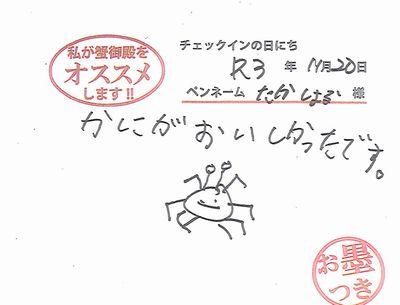 私が蟹御殿を
オススメ
します!!
チェックインの日にち
R3 年 11月20日
ペンネーム たかしょう 様
かにがおいしかったです。
お墨
つき